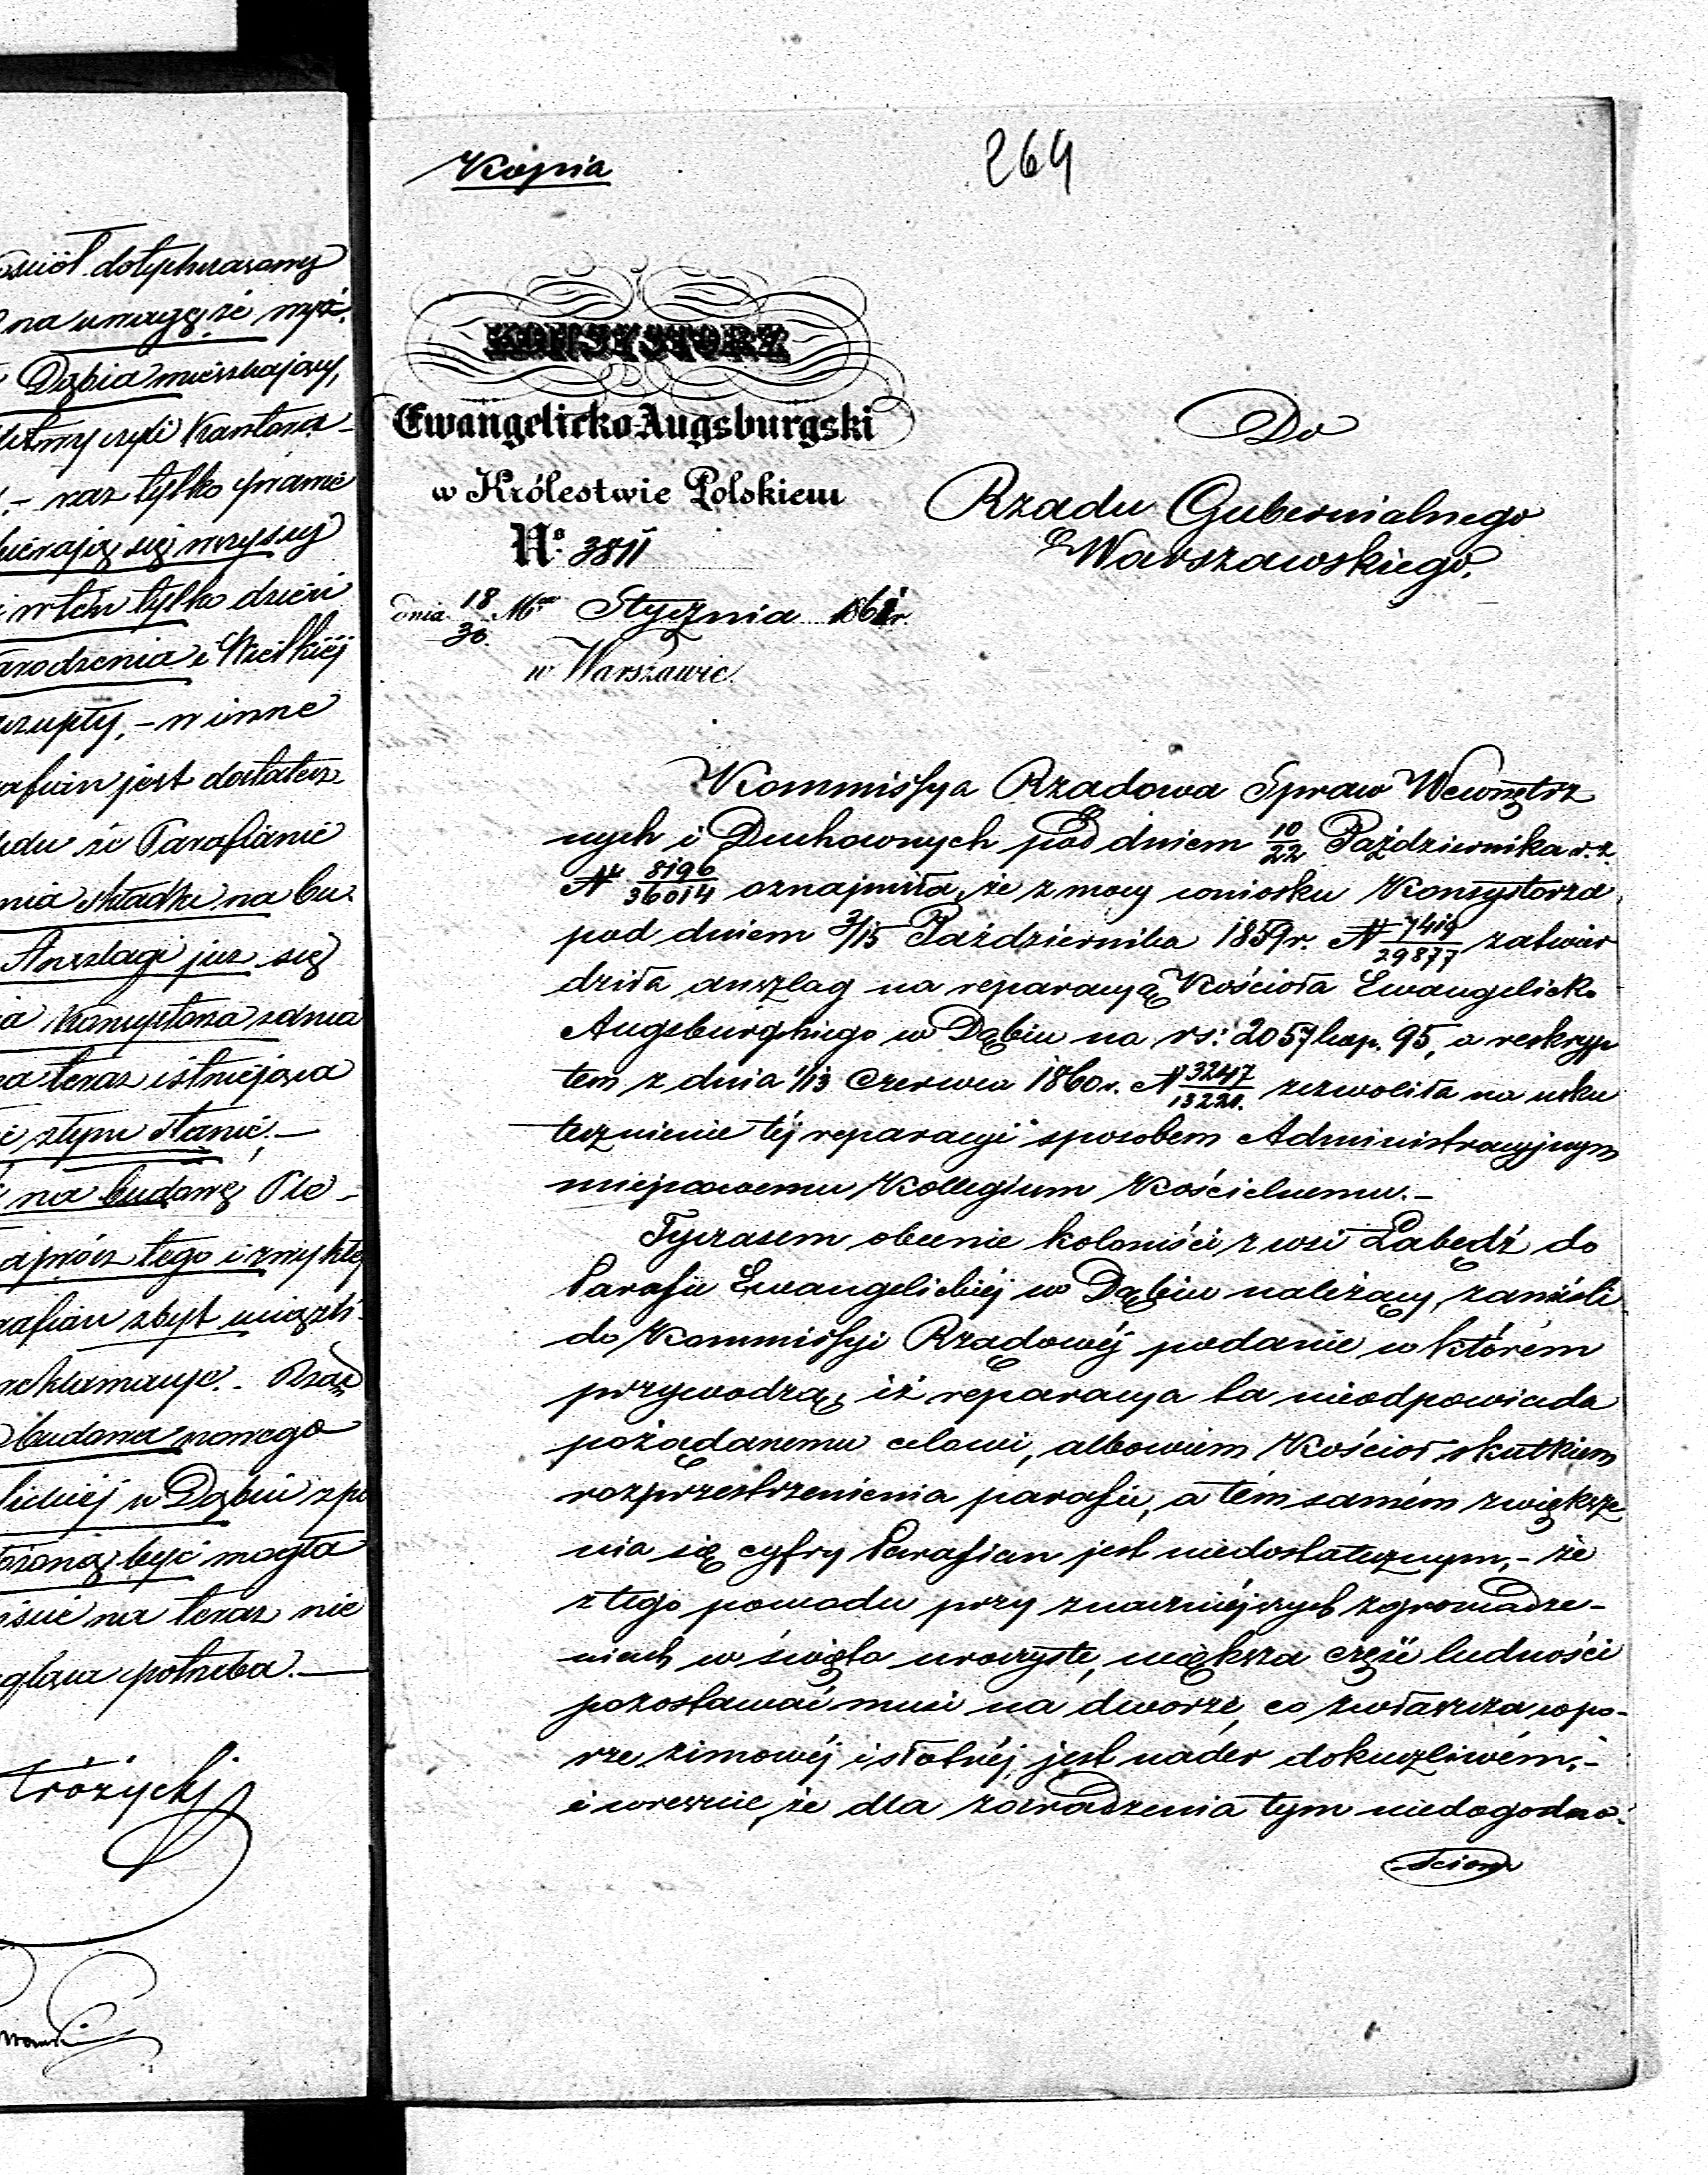 Kopia
264
KONSYSTORZ
Ewangelicko-Augsburgski
w Królestwie Polskiem
No. 3811
dnia 18/30 Mca Stycznia 1861 r.
w Warszawie.
Do
Rządu Gubernialnego
Warszawskiego.
Kommissya Rządowa Spraw Wewnętrz
nych i Duchownych pod dniem 10/22 Października r. z.
N 8196/36014 oznajmiła, że z mocy wniosku Konsystorza
pod dniem 3/15 Października 1859 r. N 7419/29877 zatwier
dziła anszlag na reparacyą Kościoła Ewangelicko
Augsburgskiego w Dąbiu na rs: 2057 kop. 95, a reskryp
tem z dnia 1/13 Czerwca 1860 r. N 3247/13221. zezwoliła na usku
tecznienie téj reparacyi sposobem Administracyjnym
miejscowemu Kollegium Kościelnemu.-
Tymczasem obecnie koloniści z wsi Łabędź do
Parafii Ewangelickiéj w Dąbiu należący, zanieśli
do Kommissyi Rządowéj podanie w którém
przywodzą, iż reparacya ta nieodpowiada
pożądanemu celowi, albowiem Kościoł skutkiem
rozprzestrzenienia parafii, a tém samém zwiększe
nia się cyfry Parafian jest niedostatecznym,- że
z tego powodu przy znaczniéjszych zgromadze-
niach w święta uroczyste, większa część ludności
pozostawać musi na dworze, co zwłaszcza w po-
rze zimowéj i słotnéj, jest nader dokuczliwém,-
i wreszcie, że dla zaradzenia tym niedogodno-
ściom
ościół dotychczasowy
na uwagę że
Dąbia mieszkający,
Kantora-
- raz tylko prawie
bierają się wszyscy
i w ten tylko dzień
arodzenia i Wielkiéj
- w inne
afian jest dostatecz-
że Parafianie
nia składki na bu-
Anszlagi już się
Konsystorza
na teraz istniejąca
złym stanie.-
na budowę Ple-
oprócz tego i zwykłej
afian zbyt
reklamacye. Rząd
budowa nowego
lickiéj w Dąbiu
być mogła
na teraz nie
potrzeba.-